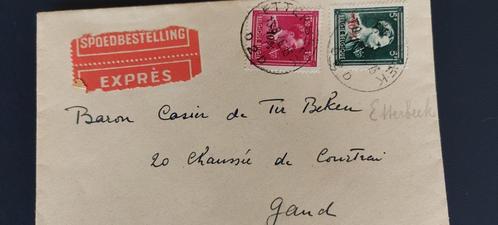 SPOEDBESTELLING
EXPRÈS
Baron Casier de Ter Beken
Etterbeek
20 Chaussée de Courtrai
Gand